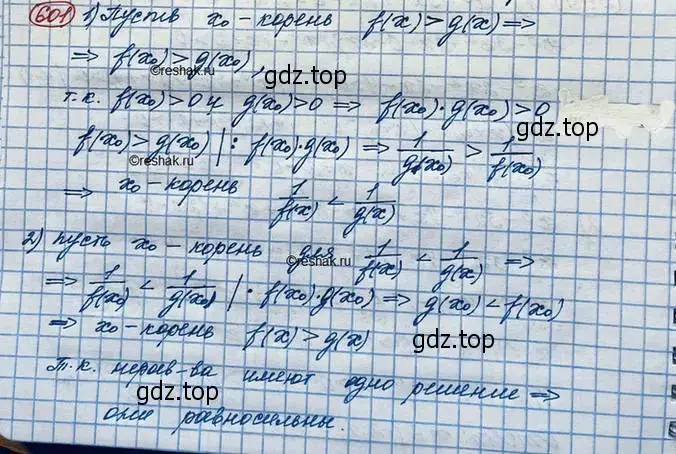 601 1) Пусть x₀ - корень f(x) > g(x) ⇒
⇒ f(x₀) > g(x₀),
©reshak.ru
gdz.top
т.к. f(x₀) > 0 и g(x₀) > 0 ⇒ f(x₀)·g(x₀) > 0
gdz.top
f(x₀) > g(x₀) | : f(x₀)·g(x₀) ⇒ 1/g(x₀) > 1/f(x₀)
©reshak.ru
⇒ x₀ - корень 1/f(x) < 1/g(x)
2) пусть x₀ - корень для 1/f(x) < 1/g(x) ⇒
©reshak.ru
⇒ 1/f(x₀) < 1/g(x₀) | · f(x₀)·g(x₀) ⇒ g(x₀) < f(x₀)
⇒ x₀ - корень f(x) > g(x)
gdz.top
Т.к. нерав-ва имеют одно решение ⇒
gdz.top
они равносильны.